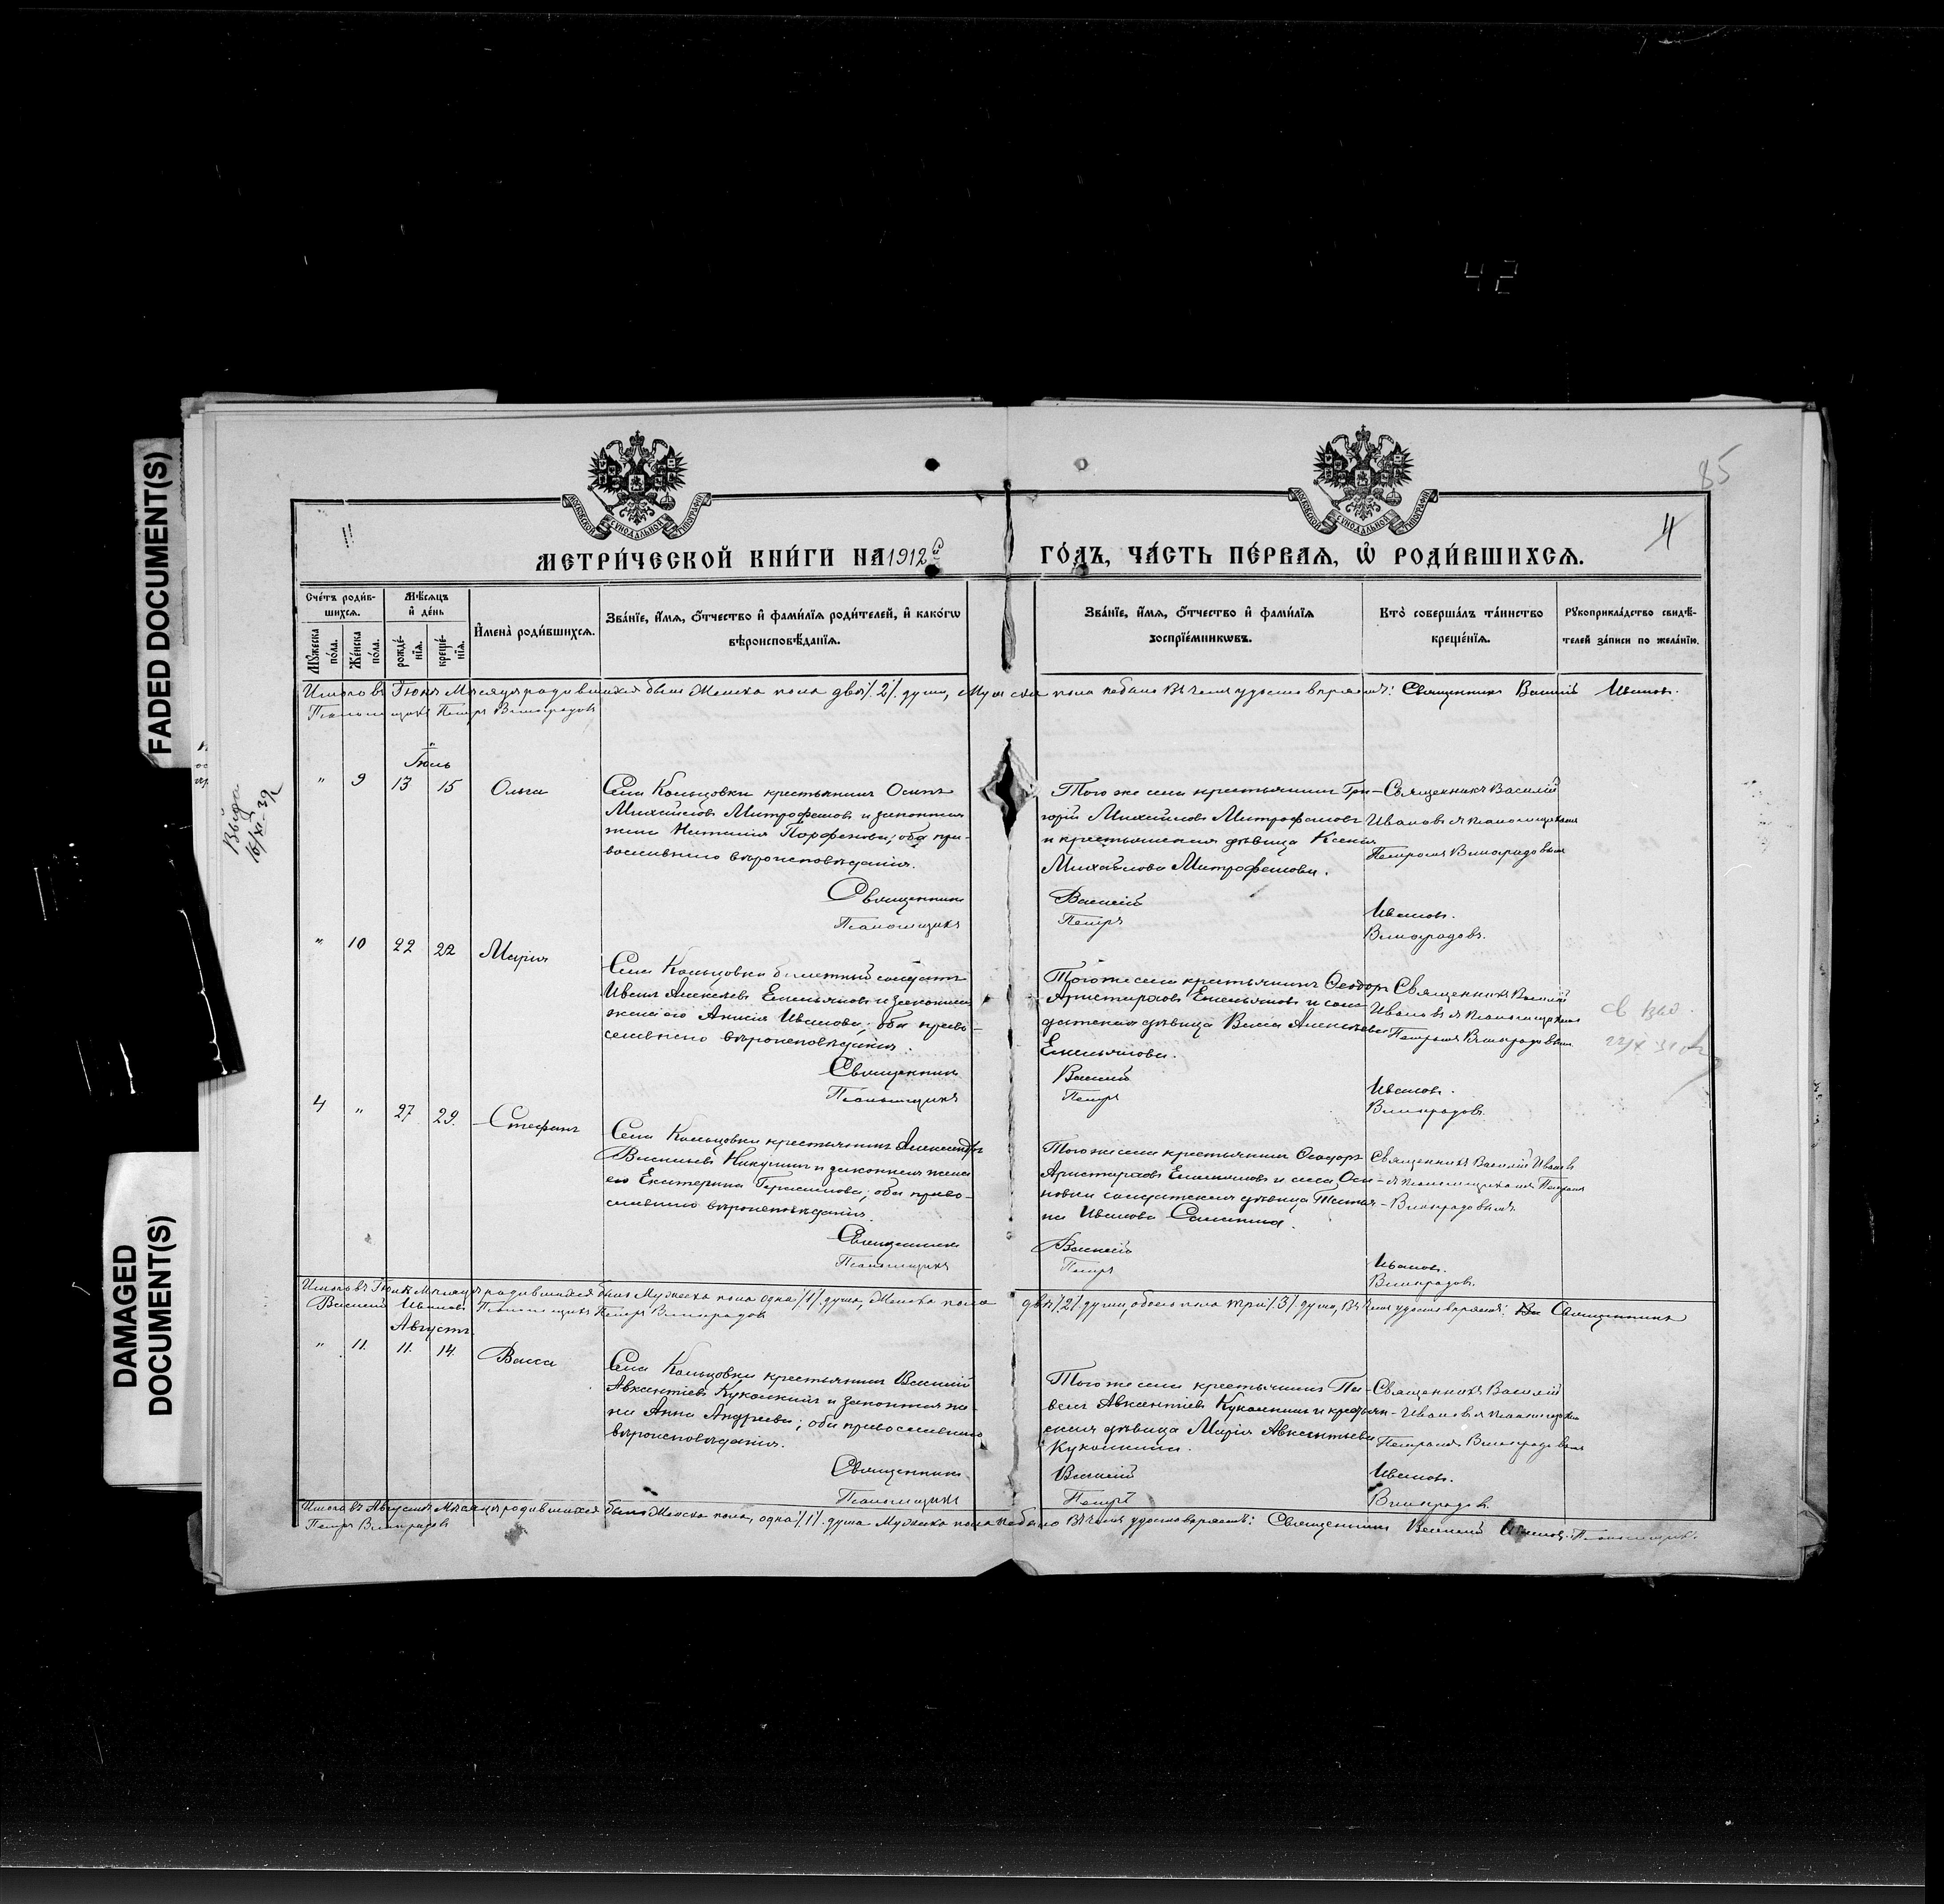 42
FADED DOCUMENT(S)
DAMAGED
DOCUMENT(S)
85
4
11
МОСКОВСКОЙ СѴНОДАЛЬНОЙ ТИПОГРАФІИ
МОСКОВСКОЙ СѴНОДАЛЬНОЙ ТИПОГРАФІИ
МЕТРИ́ЧЕСКОЙ КНИ́ГИ НА 1912 ГО́ДЪ, ЧА́СТЬ ПЕ́РВАЯ, Ѡ РОДИ́ВШИХСЯ.
Сче́тъ роди́вшихся.
Мꙋ́жеска по́ла.
Же́нска по́ла.
Мѣ́сяцъ и де́нь
рожде́нїя.
креще́нїя.
Имена̀ роди́вшихся.
Зва́нїе, и́мя, о́тчество и фами́лїя роди́телей, и како́гѡ
вѣроисповѣ́данїя.
Зва́нїе, и́мя, о́тчество и фами́лїя
воспрїе́мникѡвъ.
Кто̀ соверша́лъ та́инство
креще́нїя.
Рꙋкоприкла́дство свидѣ́-
телей за́писи по жела́нїю.
Итого въ Іюнѣ Мѣсяцѣ родившихся было Женска пола двѣ /2/ души, Мужска пола небыло Въ чемъ удостовѣряемъ: Священникъ Василій Ивановъ.
Псаломщикъ Петръ Виноградовъ
Іюль
" 9 13 15 Ольга
Села Кольцовки крестьянинъ Осипъ
Михайловъ Митрофановъ и законная
жена Наталия Парфенова; оба пра-
вославнаго вѣроисповѣдания.
Тогоже села крестьянинъ Гри-
горій Михайловъ Митрофановъ
и крестьянская дѣвица Ксенія
Михайлова Митрофанова.
Священникъ Василій
Ивановъ я псаломщикомъ
Петромъ Виноградовымъ
Священникъ Василій Ивановъ.
Псаломщикъ Петръ Виноградовъ.
" 10 22 22 Марія
Села Кольцовки билетный солдатъ
Иванъ Алексѣевъ Емельяновъ и законная
жена его Анисія Иванова; оба право-
славнаго вѣроисповѣдания.
Тогоже села крестьянинъ Ѳеодоръ
Аристарховъ Емельяновъ и сол-
датская дѣвица Васса Алексѣева
Емельянова.
Священникъ Василій
Ивановъ я псаломщикомъ
Петромъ Виноградовымъ
Священникъ Василій Ивановъ.
Псаломщикъ Петръ Виноградовъ.
4 " 27 29. Стефанъ
Села Кольцовки крестьянинъ Александръ
Васильевъ Никулинъ и законная жена
его Екатерина Герасимова; оба право-
славнаго вѣроисповѣдания.
Тогоже села крестьянинъ Ѳеодоръ
Аристарховъ Емельяновъ и села Оси-
новки солдатская дѣвица Татья-
на Иванова
Священникъ Василій Ивановъ
я псаломщикомъ Петромъ
Виноградовымъ
Священникъ Василій Ивановъ.
Псаломщикъ Петръ Виноградовъ.
Итого въ Іюлѣ Мѣсяцѣ родившихся было Мужеска пола одна /1/ душа, Женска пола двѣ /2/ души, обоего пола три /3/ души, Въ чемъ удостовѣряемъ: Священникъ
Василій Ивановъ Псаломщикъ Петръ Виноградовъ
Августъ
" 11. 11. 14. Васса
Села Кольцовки крестьянинъ Василій
Авксентіевъ Куколкинъ и законная же-
на Анна Андреева; оба православнаго
вѣроисповѣдания.
Тогоже села крестьянинъ Па-
велъ Авксентіевъ Куколкинъ и крестьян-
ская дѣвица Марія Авксентьева
Куколкина.
Священникъ Василій
Ивановъ я псаломщикомъ
Петромъ Виноградовымъ
Священникъ Василій Ивановъ.
Псаломщикъ Петръ Виноградовъ.
Итого въ Августѣ Мѣсяцѣ родившихся было Женска пола, одна /1/ душа Мужеска пола небыло Въ чемъ удостовѣряемъ: Священникъ Василій Ивановъ. Псаломщикъ
Петръ Виноградовъ